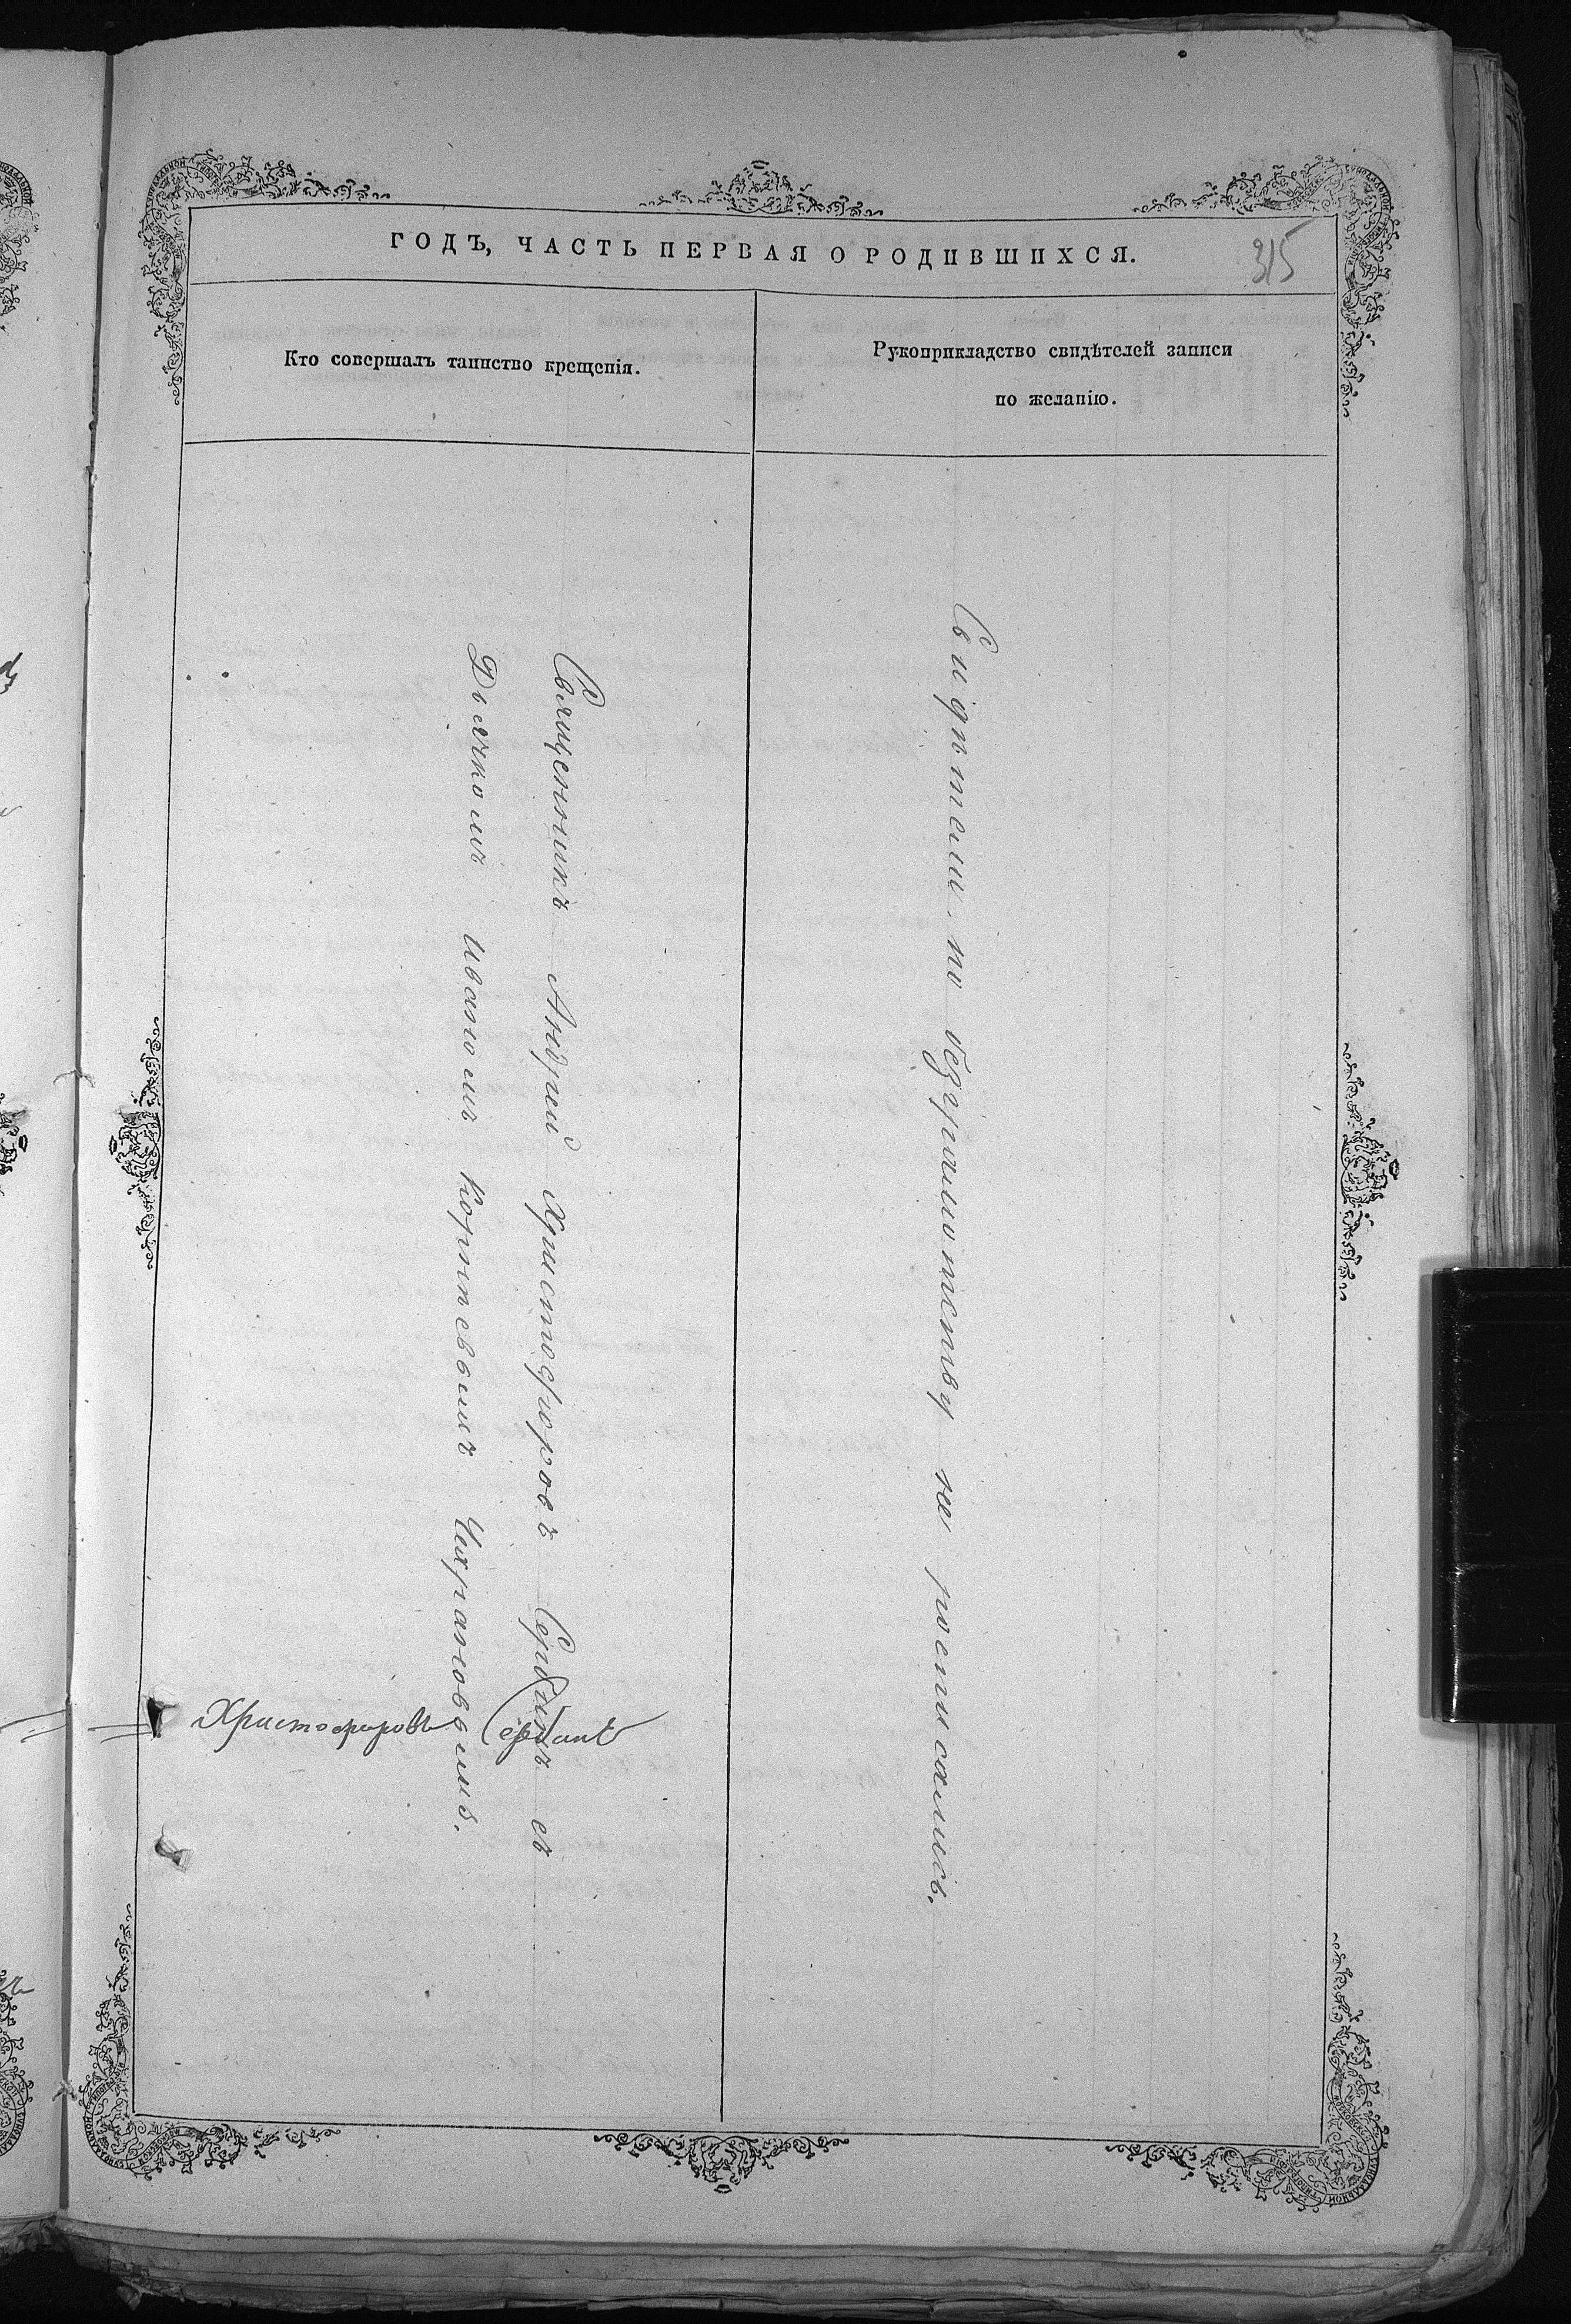 ГОДЪ, ЧАСТЬ ПЕРВАЯ О РОДИВШИХСЯ.
315
Кто совершалъ таинство крещенія.
Рукоприкладство свидѣтелей записи
по желанію.
Священникъ Андрей Христофоровъ Сербинъ съ
Дьячкомъ Иваномъ Корнѣевымъ
Христофоровъ Сербинъ
Свидѣтели по безграмотству не росписались.